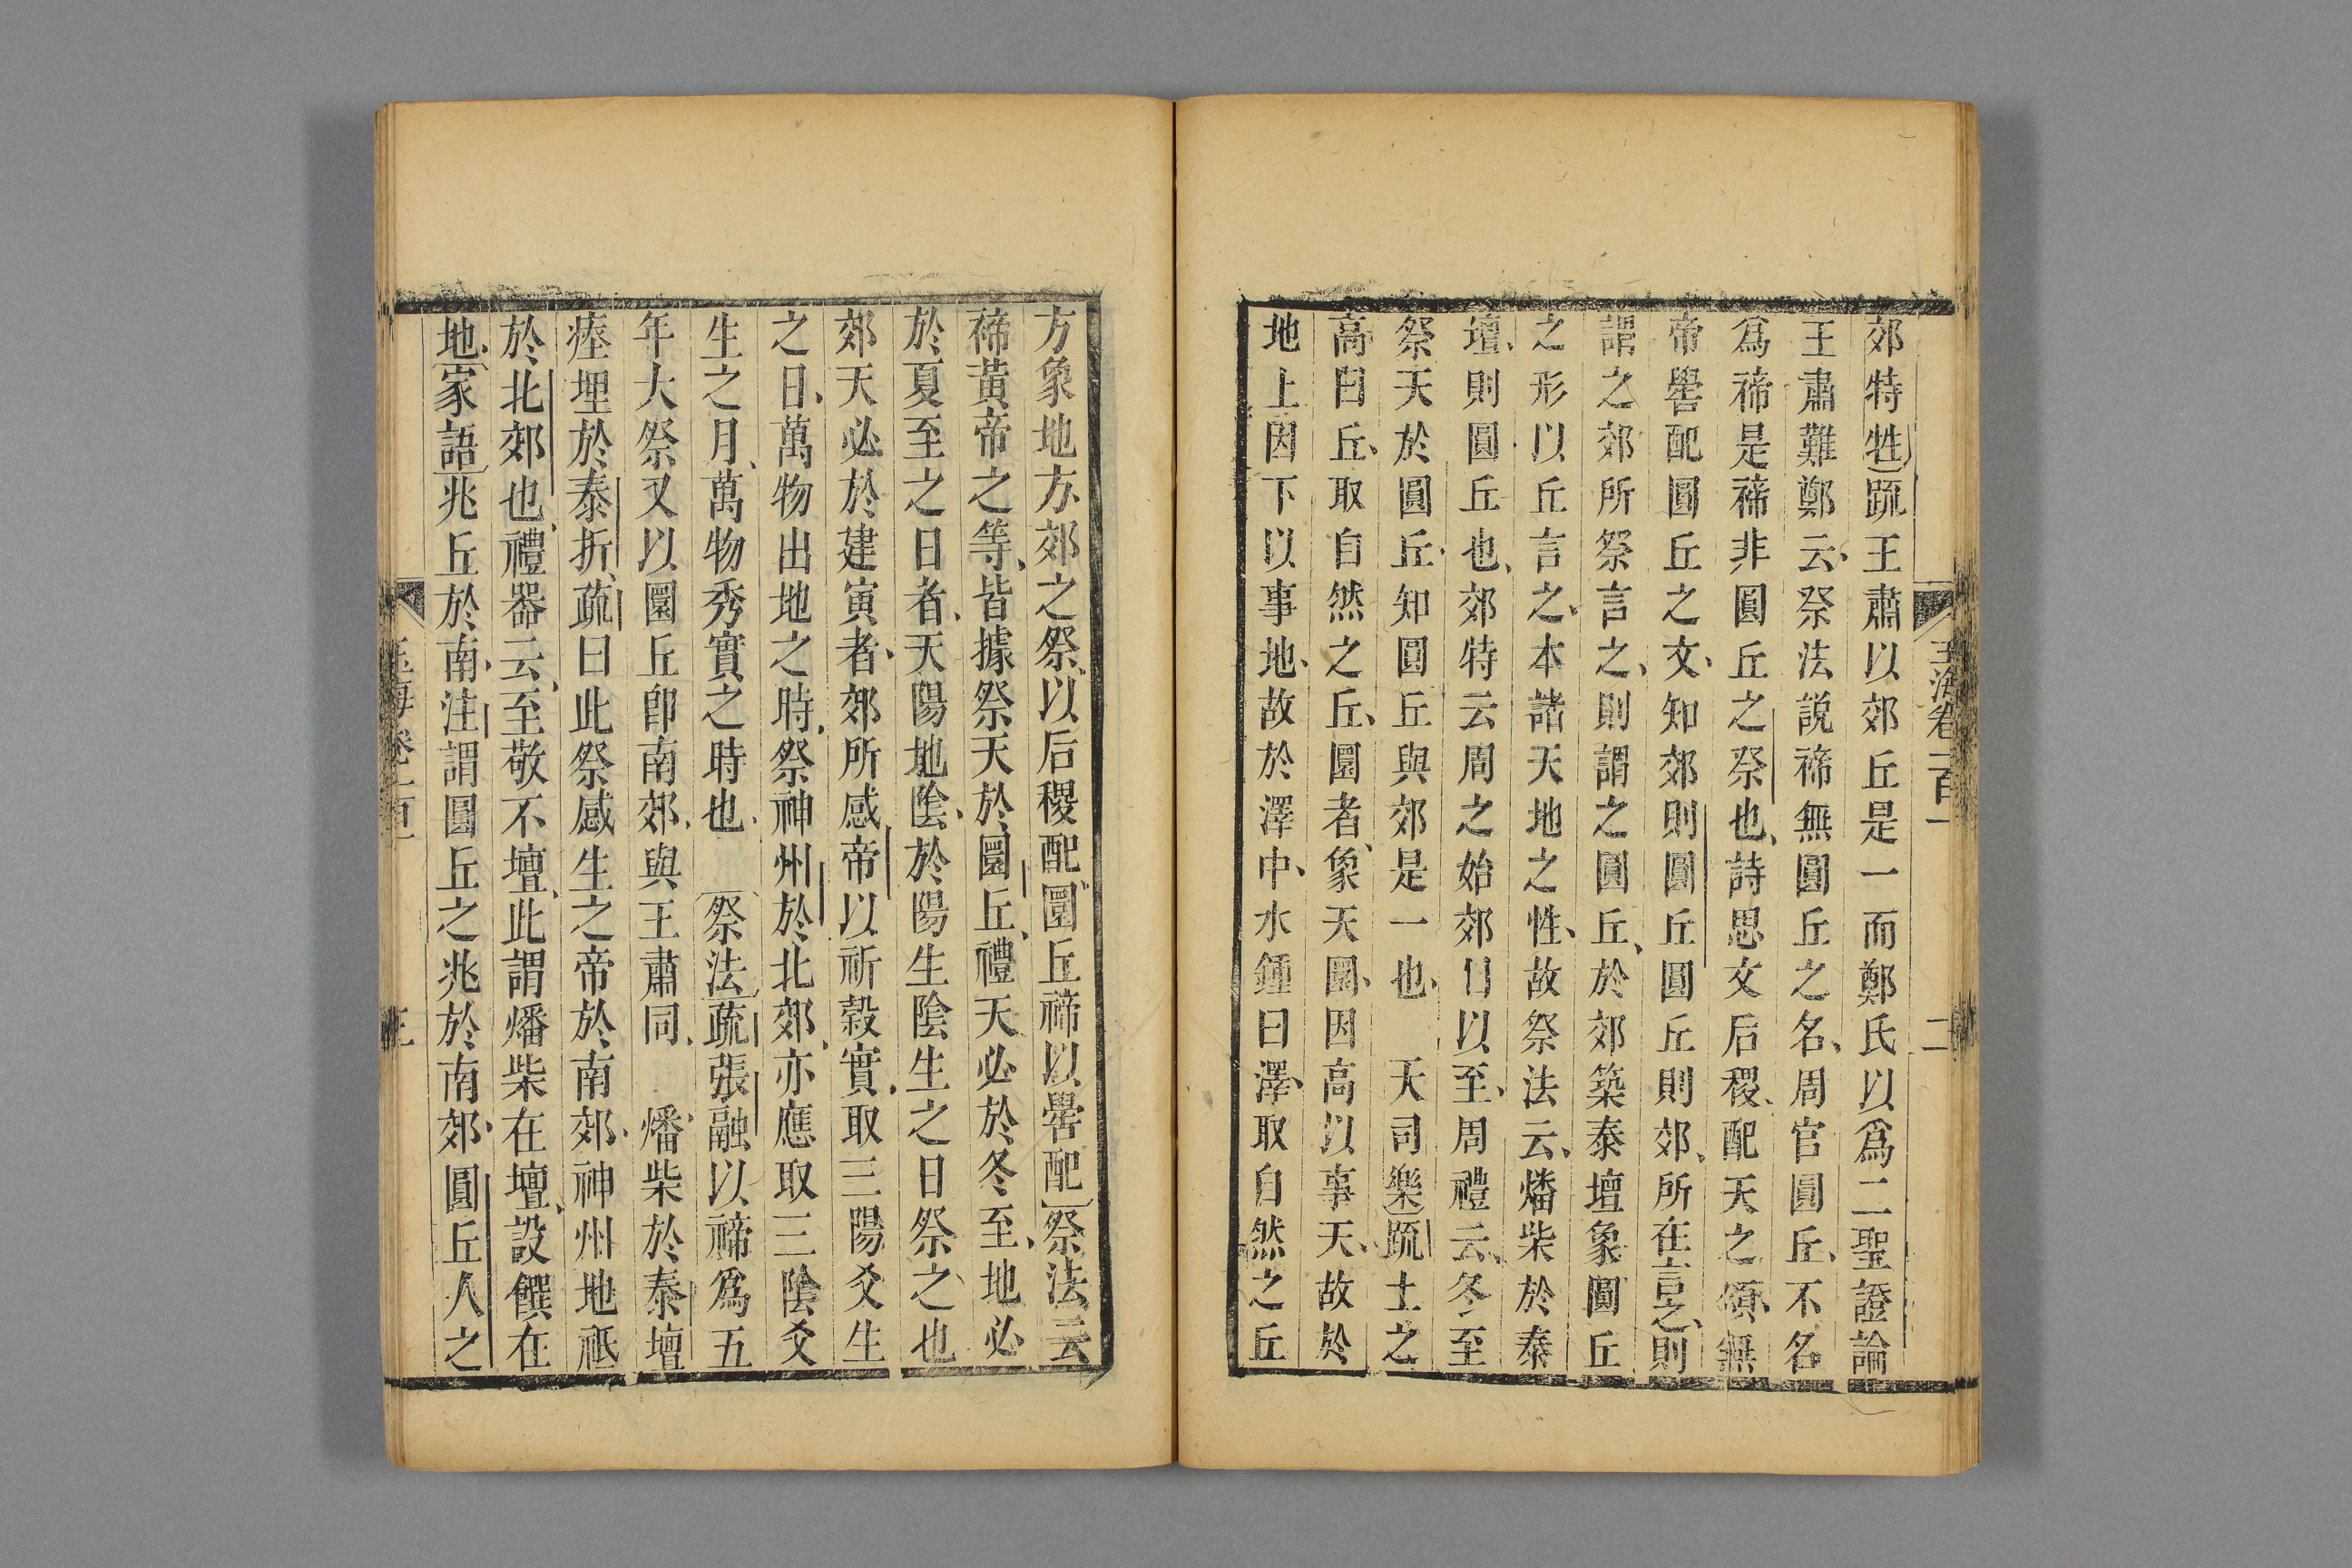 玉海卷一百一
二
郊特牲疏王肅以郊丘是一而鄭氏以爲二聖證論
王肅難鄭云祭法説禘無圓丘之名周官圓丘不名
爲禘是禘非圓丘之祭也詩思文后稷配天之頌無
帝嚳配圓丘之文知郊則圓丘圓丘則郊所在言之則
謂之郊所祭言之則謂之圓丘於郊築泰壇象圓丘
之形以丘言之本諸天地之性故祭法云燔柴於泰
壇則圓丘也郊特云周之始郊日以至周禮云冬至
祭天於圓丘知圓丘與郊是一也　大司樂疏土之
高曰丘取自然之丘圜者象天圜因高以事天故於
地上因下以事地故於澤中水鍾曰澤取自然之丘
方象地方郊之祭以后稷配圜丘禘以嚳配祭法云
禘黃帝之等皆據祭天於圜丘禮天必於冬至地必
於夏至之日者天陽地陰於陽生陰生之日祭之也
郊天必於建寅者郊所感帝以祈穀實取三陽爻生
之日萬物出地之時祭神州於北郊亦應取三陰爻
生之月萬物秀實之時也　祭法疏張融以禘爲五
年大祭又以圜丘卽南郊與王肅同　燔柴於泰壇
瘞埋於泰折疏曰此祭感生之帝於南郊神州地祗
於北郊也禮器云至敬不壇此謂燔柴在壇設饌在
地家語兆丘於南注謂圓丘之兆於南郊圓丘人之